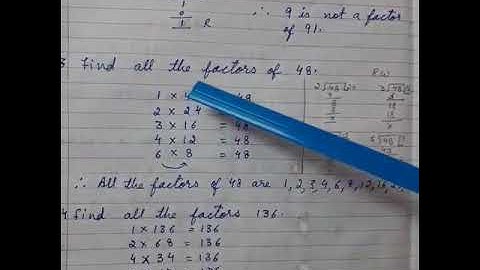 1
0
1 R
∴ 9 is not a factor
of 91.
3 Find all the factors of 48.
R.W
1 × 4 = 48
2 × 24
3 × 16 = 48
4 × 12 = 48
6 × 8 = 48
∴ All the factors of 48 are 1, 2, 3, 4, 6, 8, 12, 16, 2
4. Find all the factors 136.
1 × 136 = 136
2 × 68 = 136
4 × 34 = 136